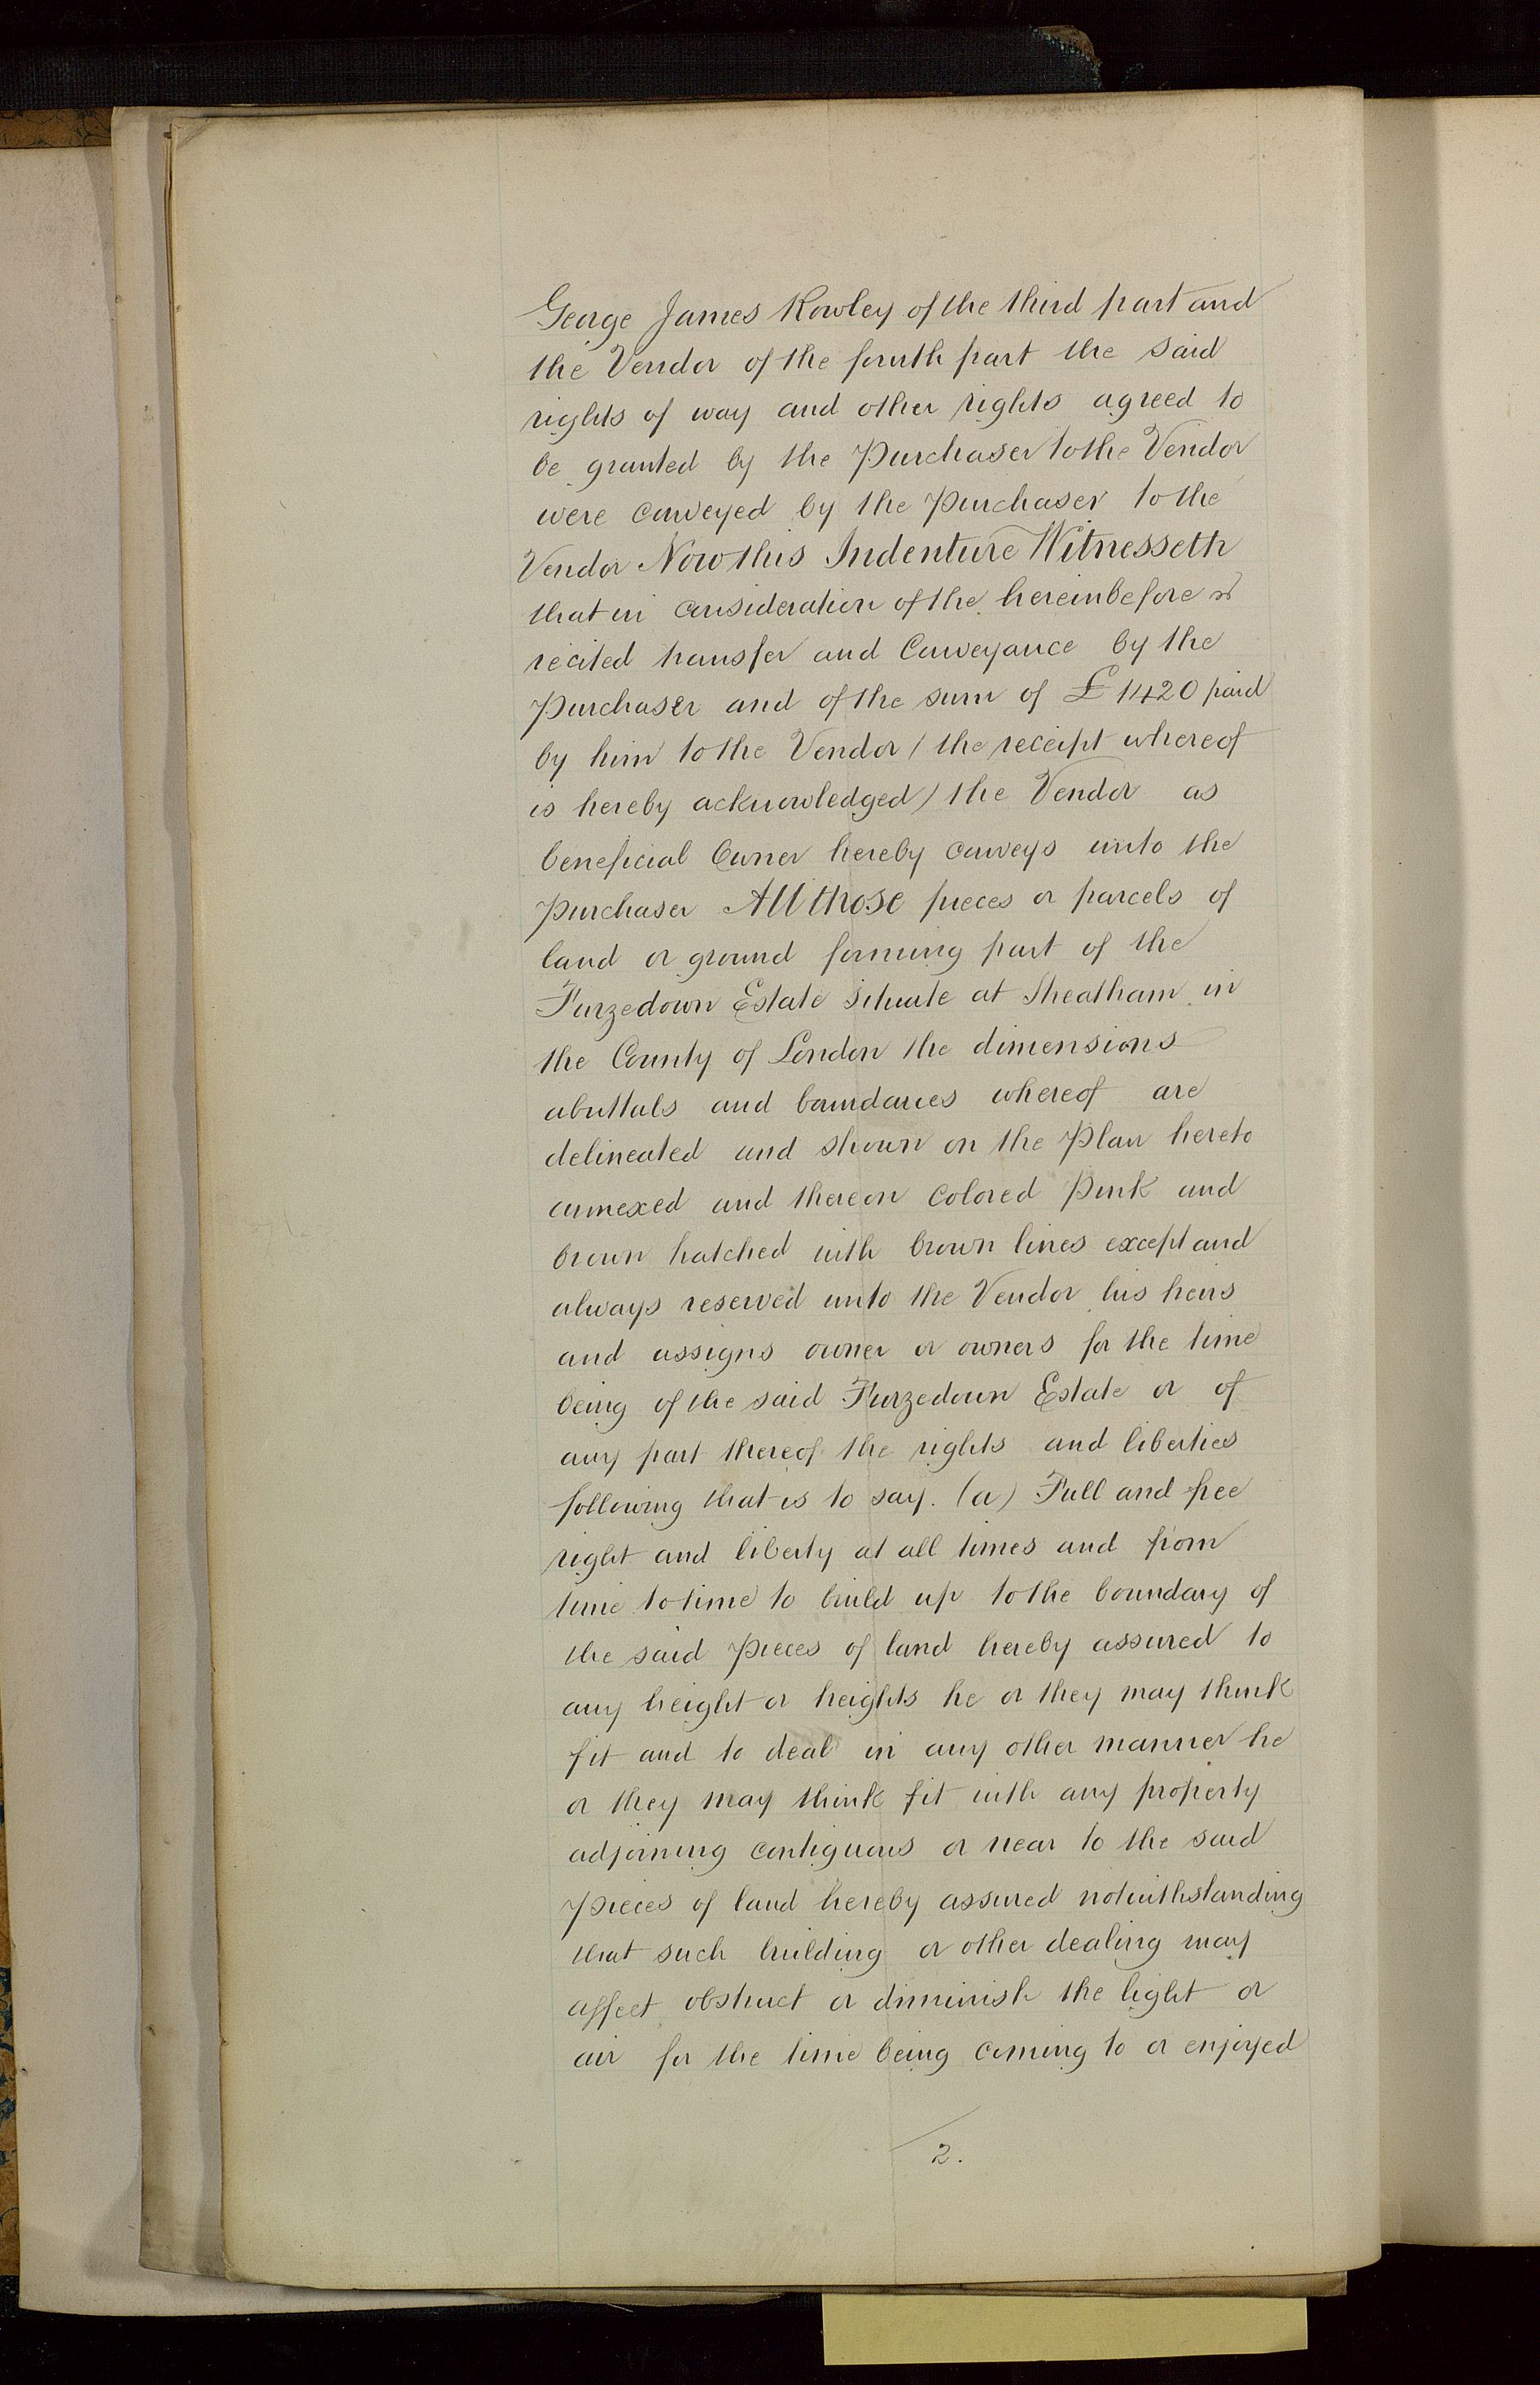 George James Rowley of the third part and
the Vendor of the fourth part the said
rights of way and other rights agreed to
be granted by the Purchaser to the Vendor
were conveyed by the Purchaser to the
Vendor Now this Indenture Witnesseth
that in consideration of the hereinbefore
recited transfer and Conveyance by the
Purchaser and of the sum of £1420 paid
by him to the Vendor (the receipt whereof
is hereby acknowledged) the Vendor as
beneficial Owner hereby conveys unto the
Purchaser All those pieces or parcels of
land or ground forming part of the
Furzedown Estate situate at Streatham in
the County of London the dimensions
abuttals and boundaries whereof are
delineated and shown on the Plan hereto
annexed and thereon colored Pink and
brown hatched with brown lines except and
always reserved unto the Vendor his heirs
and assigns owner or owners for the time
being of the said Furzedown Estate or of
any part thereof the rights and liberties
following that is to say. (a) Full and free
right and liberty at all times and from
time to time to build up to the boundary of
the said pieces of land hereby assured to
any height or heights he or they may think
fit and to deal in any other manner he
or they may think fit with any property
adjoining contiguous or near to the said
pieces of land hereby assured notwithstanding
that such building or other dealing may
affect obstruct or diminish the light or
air for the time being coming to or enjoyed
2.